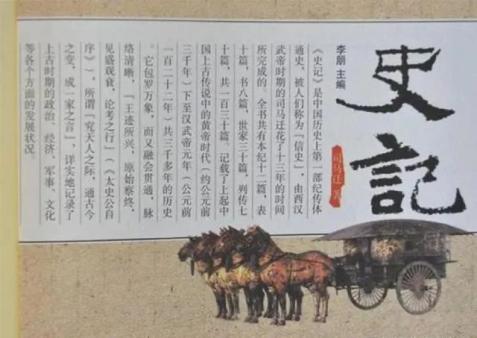 史記
司马迁 著
李朋 主编
《史记》是中国历史上第一部纪传体
通史，被人们称为「信史」，由西汉
武帝时期的司马迁花了十三年的时间
所完成的。全书共有本纪十二篇，表
十篇，书八篇，世家三十篇，列传七
十篇，共一百三十篇，记载了上起中
国上古传说中的黄帝时代（约公元前
三千年）下至汉武帝元年（公元前
一百二十二年）共三千多年的历史
。它包罗万象，而又融会贯通，脉
络清晰，「王迹所兴，原始察终，
见盛观衰，论考之行」（《太史公自
序》），所谓「究天人之际，通古今
之变，成一家之言」，详实地记录了
上古时期的政治、经济、军事、文化
等各个方面的发展状况。